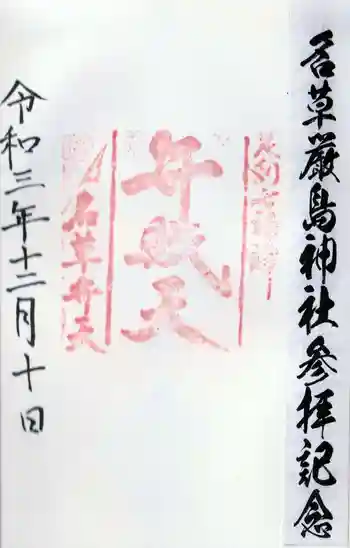 名草厳島神社参拝記念
弁財天
名草弁天
令和三年十二月十日